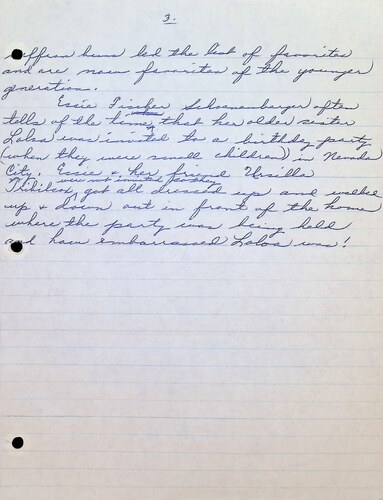 3.
saffron buns led the list of favorites
and are now favorites of the younger
generation.
Essie Fischer Schoenenberger often
tells of the time, that her older sister
Loloa was invited to a birthday party
(when they were small children) in Nevada
City. Essie & her friend Ursilla
were not invited
Thibilox, got all dressed up and walked
up & down out in front of the home
where the party was being held
and how embarrassed Loloa was!